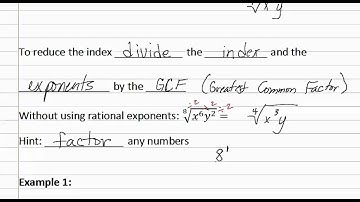 ⁴√x y
To reduce the index divide the index and the
exponents by the GCF (Greatest Common Factor)
÷2 ÷2 ÷2
Without using rational exponents: ⁸√x⁶y² = ⁴√x³y
Hint: factor any numbers
8'
Example 1: